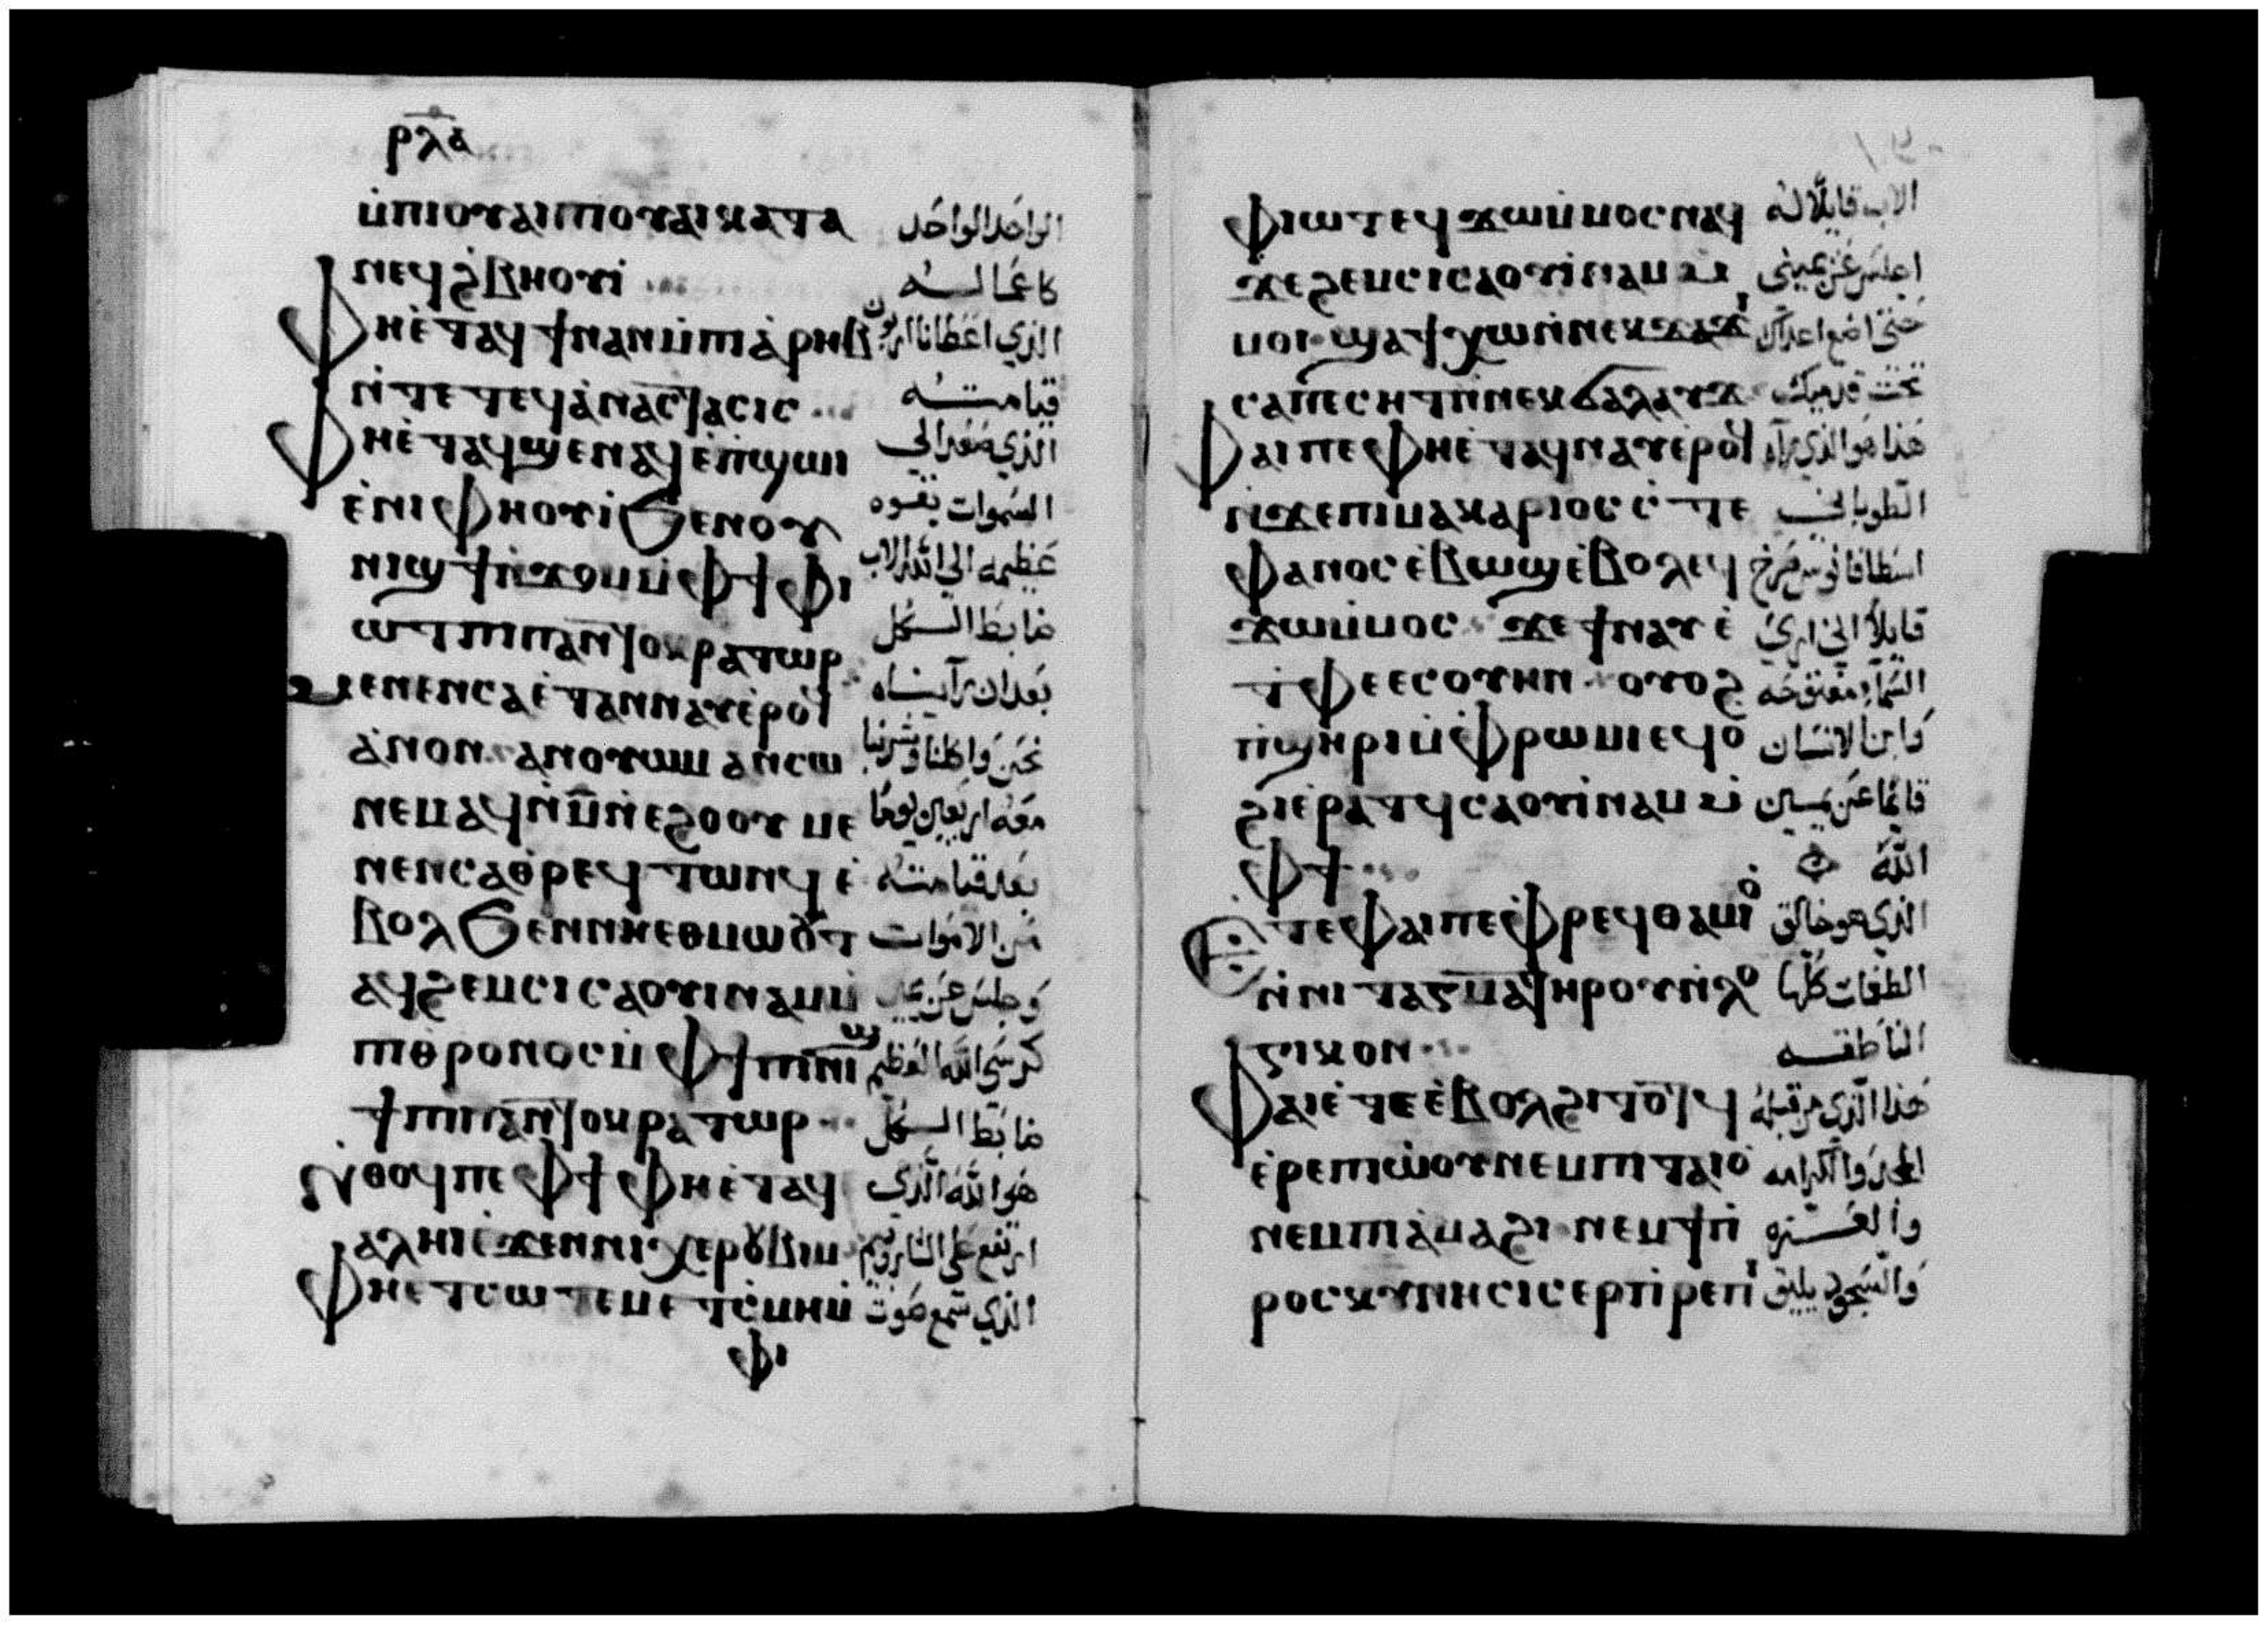 ⲣⲗⲁ
ⲙ̇ⲡⲓⲟⲩⲁⲓⲡⲓⲟⲩⲁⲓⲕⲁⲧⲁ الواحد الواحد
ⲛⲉϥϩ̇ⲃⲏⲟⲩⲓ̇ كاعماله
ⲫⲏⲉ̇ⲧⲁϥϯⲛⲁⲛⲙ̇ⲡⲓⲁ̇ⲣⲏⲃ الذي اعطانا اربون
ⲛ̇ⲧⲉⲧⲉϥⲁ̇ⲛⲁⲥⲧⲁⲥⲓⲥ قيامته
ⲫⲏⲉ̇ⲧⲁϥϣⲉⲛⲁϥⲉ̇ⲡ̇ϣⲱⲓ الذي صعد الى
ⲉ̇ⲛⲓⲫⲏⲟⲩⲓ̇ϧⲉⲛⲟⲩ السموات بقوه
ⲛⲓϣϯⲛ̇ϫⲟⲙⲙ̇ⲫϯⲫⲓ عظيمه الى الله الاب
ⲱⲧⲡⲓⲡⲁⲛⲧⲟⲕⲣⲁⲧⲱⲣ ضابط الكل
ⲙⲉⲛⲉⲛⲥⲁⲉ̇ⲧⲁⲛⲛⲁⲩⲉ̇ⲣⲟϥ بعد ان رآيناه
ⲁ̇ⲛⲟⲛ ⲁⲛⲟⲩⲱⲙ ⲁⲛⲥⲱ نحن واكلنا وشربنا
ⲛⲉⲙⲁϥⲛ̇ⲙ̅ⲛ̇ⲉϩⲟⲟⲩ ⲙⲉ معه اربعين يوما
ⲛⲉⲛⲥⲁⲑ̇ⲣⲉϥⲧⲱⲛϥ ⲉ̇ بعد قيامته
ⲃⲟⲗϧⲉⲛⲛⲏⲉⲑⲙⲱⲟⲩⲧ من الاموات
ⲁϥϩⲉⲙⲥⲓⲥⲁⲟⲩⲓⲛⲁⲙⲙ̇ وجلس عن يمين
ⲡⲓⲑⲣⲟⲛⲟⲥⲙ̇ⲫϯⲡⲓⲛⲓϣ كرسي الله العظيم
ϯⲡⲓⲡⲁⲛⲧⲟⲕⲣⲁⲧⲱⲣ ضابط الكل
ⲛ̇ⲑⲟϥⲡⲉⲫϯⲫⲏⲉ̇ⲧⲁϥ هو الله الذي
ⲁⲗⲏⲓⲉ̇ϫⲉⲛⲛⲓⲭⲉⲣⲟⲩⲃⲓⲙ ارتفع على الشاروبيم
ⲫⲏⲉⲧⲥⲱⲧⲉⲙⲉⲧ̇ⲥⲙⲏⲙ̇ الذي سمع صوت
ⲫⲓ
ⲫⲓⲱⲧⲉϥϫⲱⲙ̇ⲙⲟⲥⲛⲁϥ الاب قايلا له
ϫⲉϩⲉⲙⲥⲓⲥⲁⲟⲩⲓ̇ⲛⲁⲙⲙ̇ اجلس عن يميني
ⲙⲟⲓ ϣⲁϯⲭⲱⲛ̇ⲛⲉⲕϫⲁϫⲓ حتى اضع اعداك
ⲥⲁⲡⲉⲥⲏⲧⲛ̇ⲛⲉⲕϭⲁⲗⲁⲩϫ تحت قدميك
ⲫⲁⲓⲡⲉⲫⲏⲉ̇ⲧⲁϥⲛⲁⲩⲉ̇ⲣⲟϥ هذا هو الذي رآه
ⲛ̇ϫⲉⲡⲓⲙⲁⲕⲁⲣⲓⲟⲥⲥ̇ⲧⲉ الطوباني
ⲫⲁⲛⲟⲥⲉ̇ⲃⲱϣⲉ̇ⲃⲟⲗⲉϥ اسطافانوس صرخ
ϫⲱⲙ̇ⲙⲟⲥ ϫⲉϯⲛⲁⲩⲉ̇ قايلا اني ارى
ⲧ̇ⲫⲉⲉⲥⲟⲩⲏⲛ ⲟⲩⲟϩ السماء مفتوحه
ⲡ̇ϣⲏⲣⲓⲙ̇ⲫⲣⲱⲙⲓⲉϥⲟ̇ وابن الانسان
ϩⲓⲉ̇ⲣⲁⲧϥⲥⲁⲟⲩⲓ̇ⲛⲁⲙⲙ̇ قايما عن يمين
ⲫϯ الله
ⲉ̇ⲧⲉⲫⲁⲓⲡⲉⲫ̇ⲣⲉϥⲑⲁⲙⲓⲟ الذي هو خالق
ⲛ̇ⲛⲓⲧⲁⲅⲙⲁⲧⲏⲣⲟⲩⲛ̇ⲗⲟ الطغمات كلها
ⲅⲓⲕⲟⲛ الناطقه
ⲫⲁⲓⲉ̇ⲧⲉⲉ̇ⲃⲟⲗϩⲓⲧⲟⲧϥ هذا الذي من قبله
ⲉ̇ⲣⲉⲡⲓⲱ̇ⲟⲩⲛⲉⲙⲡⲓⲧⲁⲓⲟ̇ المجد والكرامه
ⲛⲉⲙⲡⲓⲁ̇ⲙⲁϩⲓ ⲛⲉⲙϯⲡ̇ والعزه
ⲣⲟⲥⲕⲩⲛⲏⲥⲓⲥⲉⲣⲡ̇ⲣⲉⲡⲓ والسجود يليق